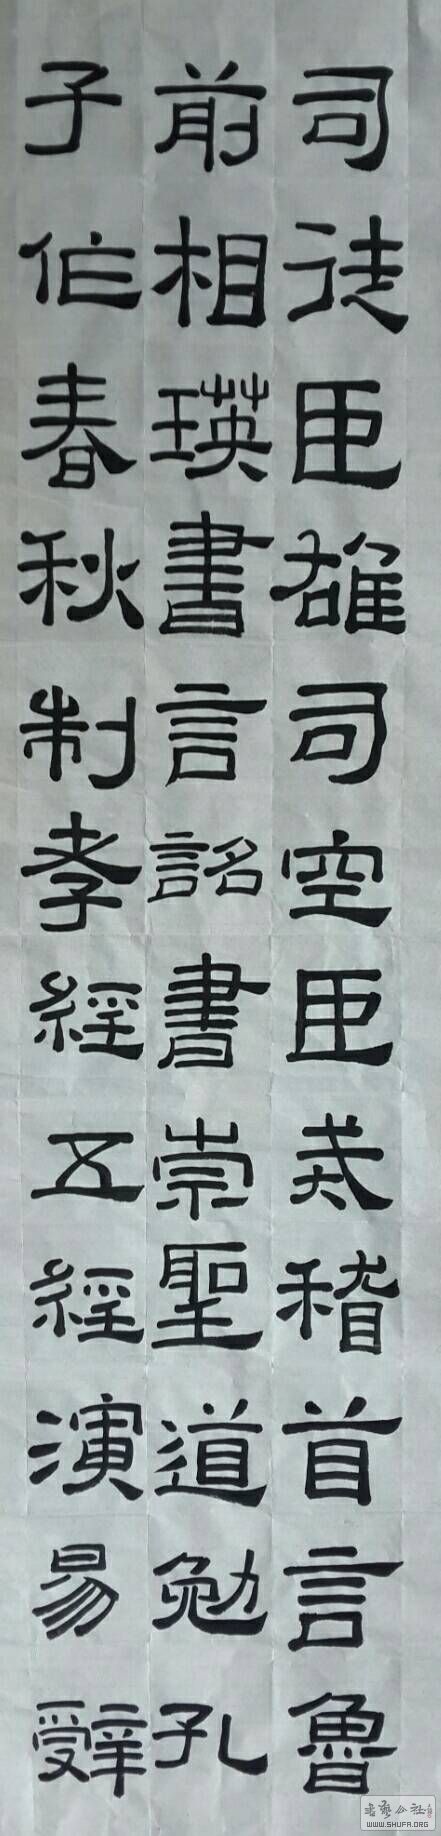 司徒臣雄司空臣戒稽首言魯
前相瑛書言詔書崇聖道勉孔
子作春秋制孝經五經演易辭
WWW.SHUFA.ORG